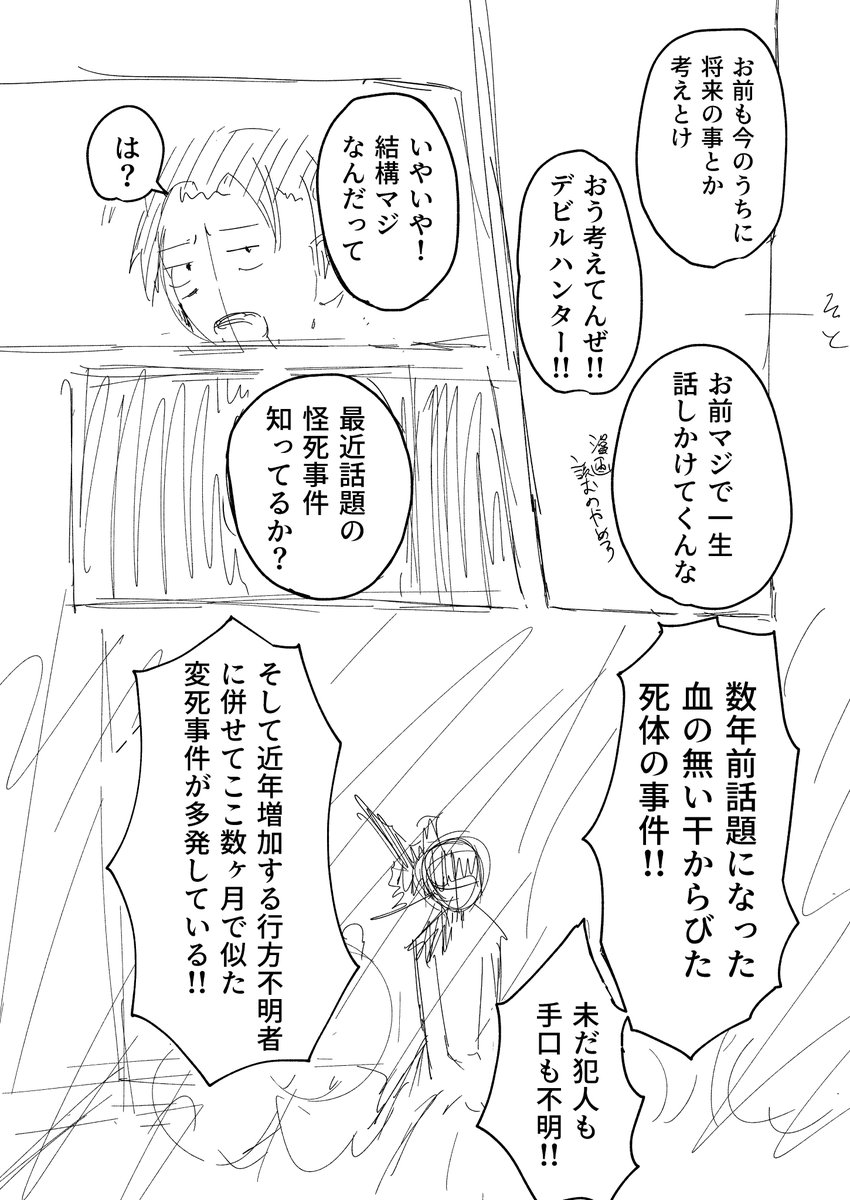 お前も今のうちに
将来の事とか
考えとけ
おう考えてんぜ!!
デビルハンター!!
そと
お前マジで一生
話しかけてくんな
漫画
読むのやめろ
いやいや!
結構マジ
なんだって
は?
最近話題の
怪死事件
知ってるか?
数年前話題になった
血の無い干からびた
死体の事件!!
未だ犯人も
手口も不明!!
そして近年増加する行方不明者
に併せてここ数ヶ月で似た
変死事件が多発している!!